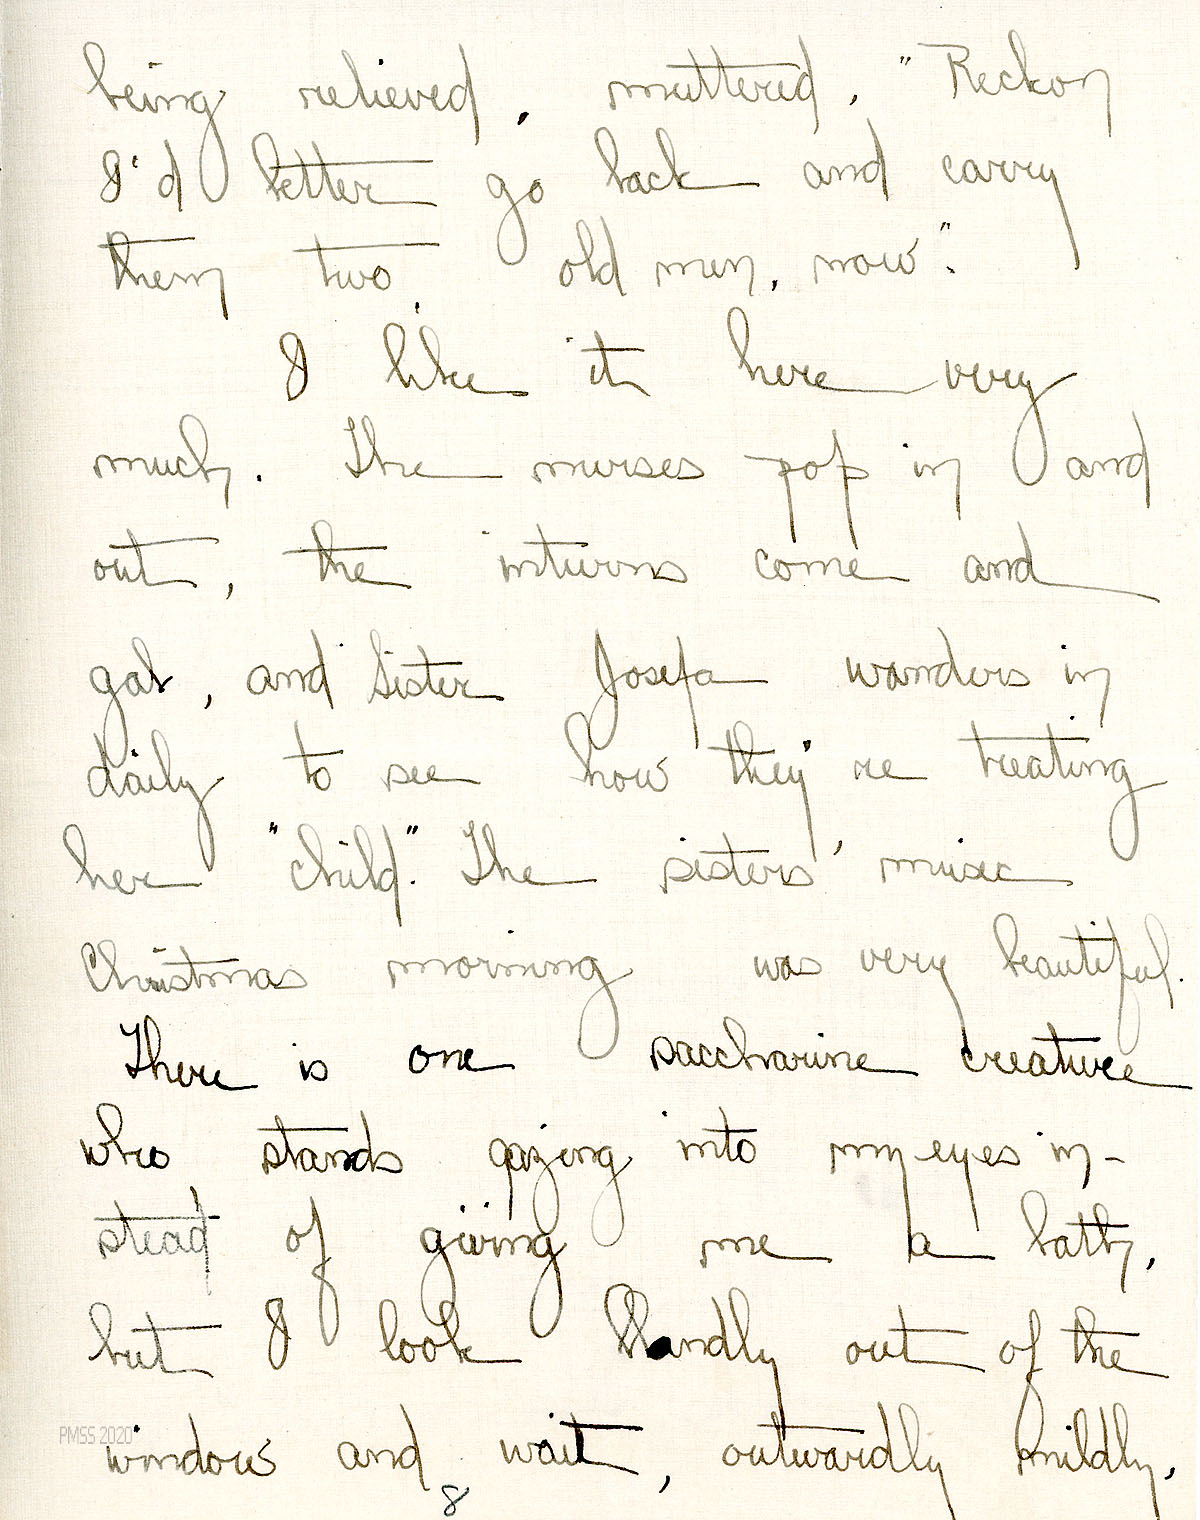 being relieved, muttered, "Reckon
I'd better go back and carry
them two old men, now".
I like it here very
much. The nurses pop in and
out, the interns come and
gab, and Sister Josefa wanders in
daily to see how they're treating
her "child". The sisters' music
Christmas morning was very beautiful.
There is one saccharine creature
who stands gazing into my eyes in-
stead of giving me a bath,
but I look blandly out of the
window and wait, outwardly mildly,
PMSS 2020
8